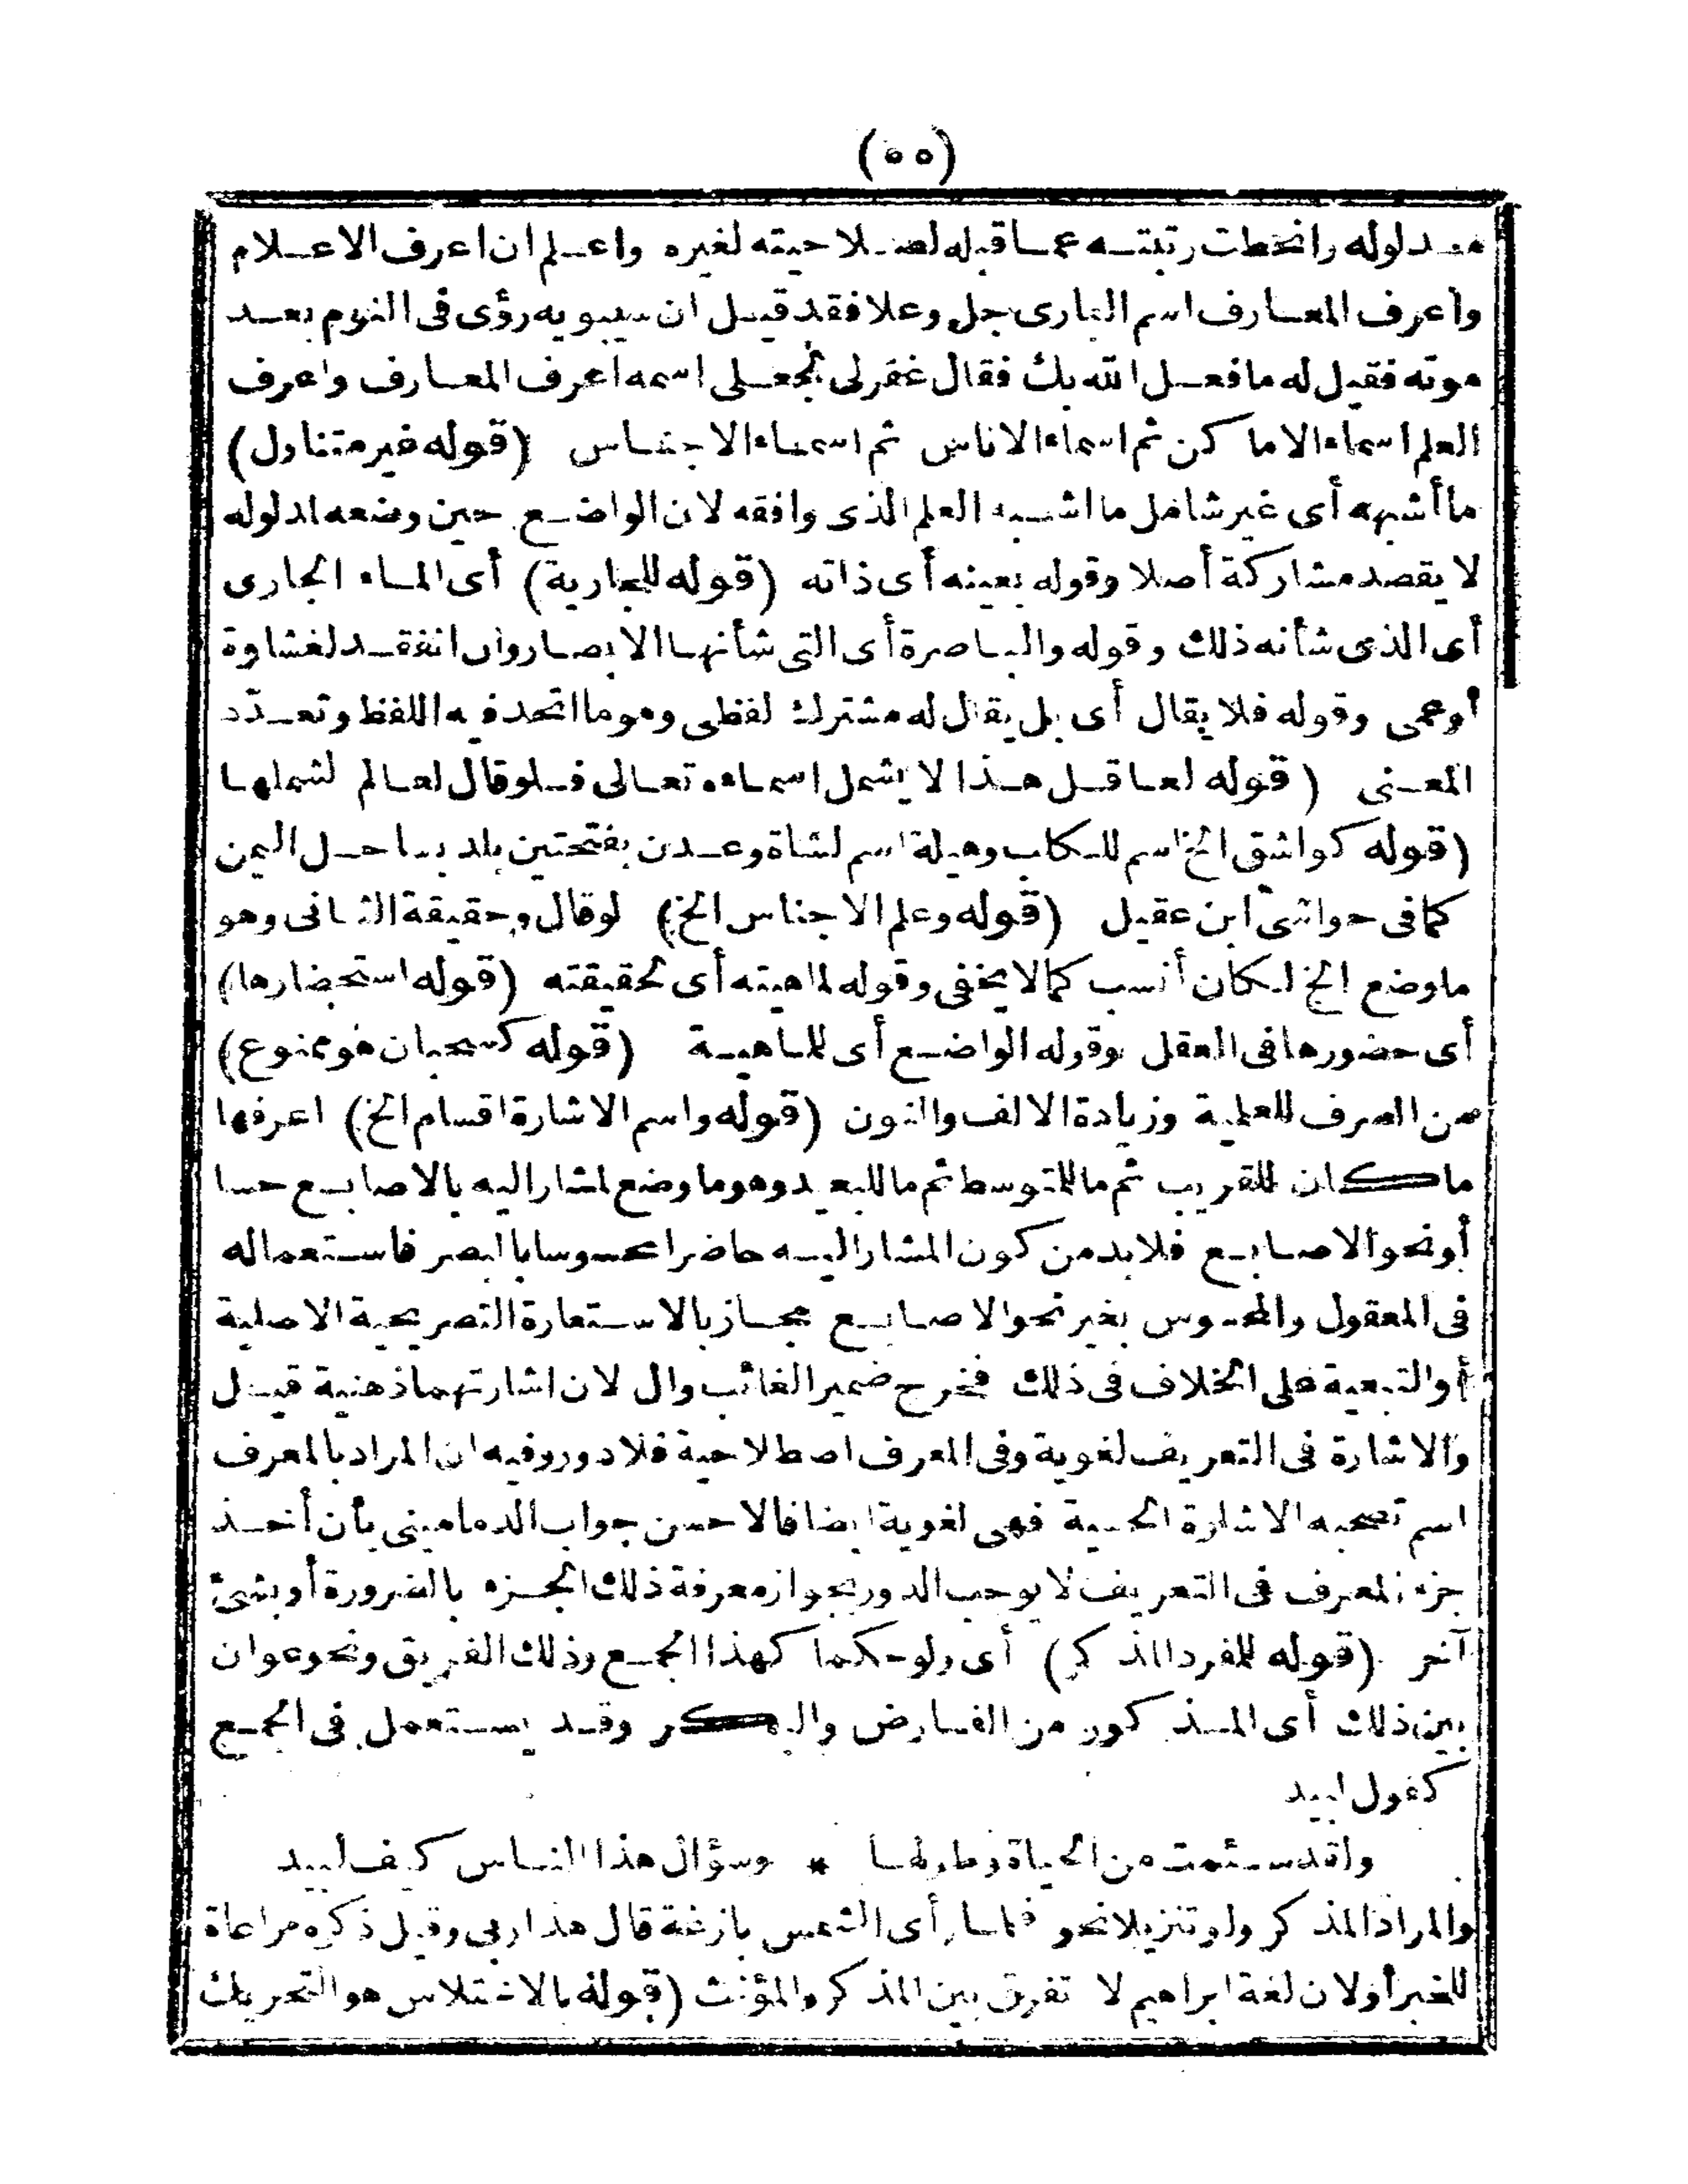 (٥٥)
مدلوله وانحطت رتبته عما قبله لصلاحيته لغيره واعلم ان اعرف الاعلام
واعرف المعارف اسم البارى جل وعلا فقد قيل ان سيبويه رؤى فى النوم بعد
موته فقيل له ما فعل الله بك فقال غفر لى بجعلى اسمه اعرف المعارف واعرف
العلم اسماء الاماكن ثم اسماء الاناس ثم اسماء الاجناس (قوله غير متناول)
ما أشبهه أى غير شامل ما اشبه العلم الذى وافقه لان الواضع حين وضعه لمدلوله
لا يقصد مشاركة أصلا وقوله بعينه أى ذاته (قوله للجارية) أى الماء الجارى
أى الذى شأنه ذلك وقوله والباصرة أى التى شأنها الابصار وان انفقد لغشاوة
أو عمى وقوله فلا يقال أى بل يقال له مشترك لفظى وهو ما اتحد فيه اللفظ وتعدّد
المعنى (قوله لعاقل هذا لا يشمل اسماءه تعالى فلو قال لعالم لشملها
(قوله كواشق الخ اسم للكلب وهيلة اسم لشاة وعدن بفتحتين بلد بساحل اليمن
كما فى حواشى ابن عقيل (قوله وعلم الاجناس الخ) لو قال وحقيقة الثانى وهو
ما وضع الخ لكان أنسب كما لا يخفى وقوله لماهيته أى لحقيقته (قوله استحضارها)
أى حضورها فى العقل وقوله الواضع أى للماهية (قوله كسبحان هو ممنوع)
من الصرف للعلمية وزيادة الالف والنون (قوله واسم الاشارة اقسام الخ) اعرفها
ما كان للقريب ثم ما للمتوسط ثم ما للبعيد وهو ما وضع لمشار اليه بالاصابع حسا
أو نحو الاصابع فلابد من كون المشار اليه حاضرا محسوسا بالبصر فاستعماله
فى المعقول والمحسوس بغير نحو الاصابع مجاز بالاستعارة التصريحية الاصلية
أو التبعية على الخلاف فى ذلك فخرج ضمير الغائب وال لان اشارتهما ذهنية قيل
والاشارة فى التعريف لغوية وفى المعرف اصطلاحية فلا دور وفيه ان المراد بالمعرف
اسم تصحبه الاشارة الحسية فهى لغوية ايضا فالاحسن جواب الدمامينى بأن أخذ
جزء المعرف فى التعريف لا يوجب الدور بجواز معرفة ذلك الجزء بالضرورة أو بشئ
آخر (قوله للمفرد المذكر) أى ولو حكما كهذا الجمع وذلك الفريق ونحو عوان
بين ذلك أى المذكور من الفارض والبكر وقد يستعمل فى الجمع
كقول لبيد
ولقد سئمت من الحياة وطولها * وسؤال هذا الناس كيف لبيد
والمراد المذكر ولو تنزيلا نحو فلما رأى الشمس بازغة قال هذا ربى وقيل ذكره مراعاة
للخبر أو لان لغة ابراهيم لا تفرق بين المذكر والمؤنث (قوله بالاختلاس هو التحريك